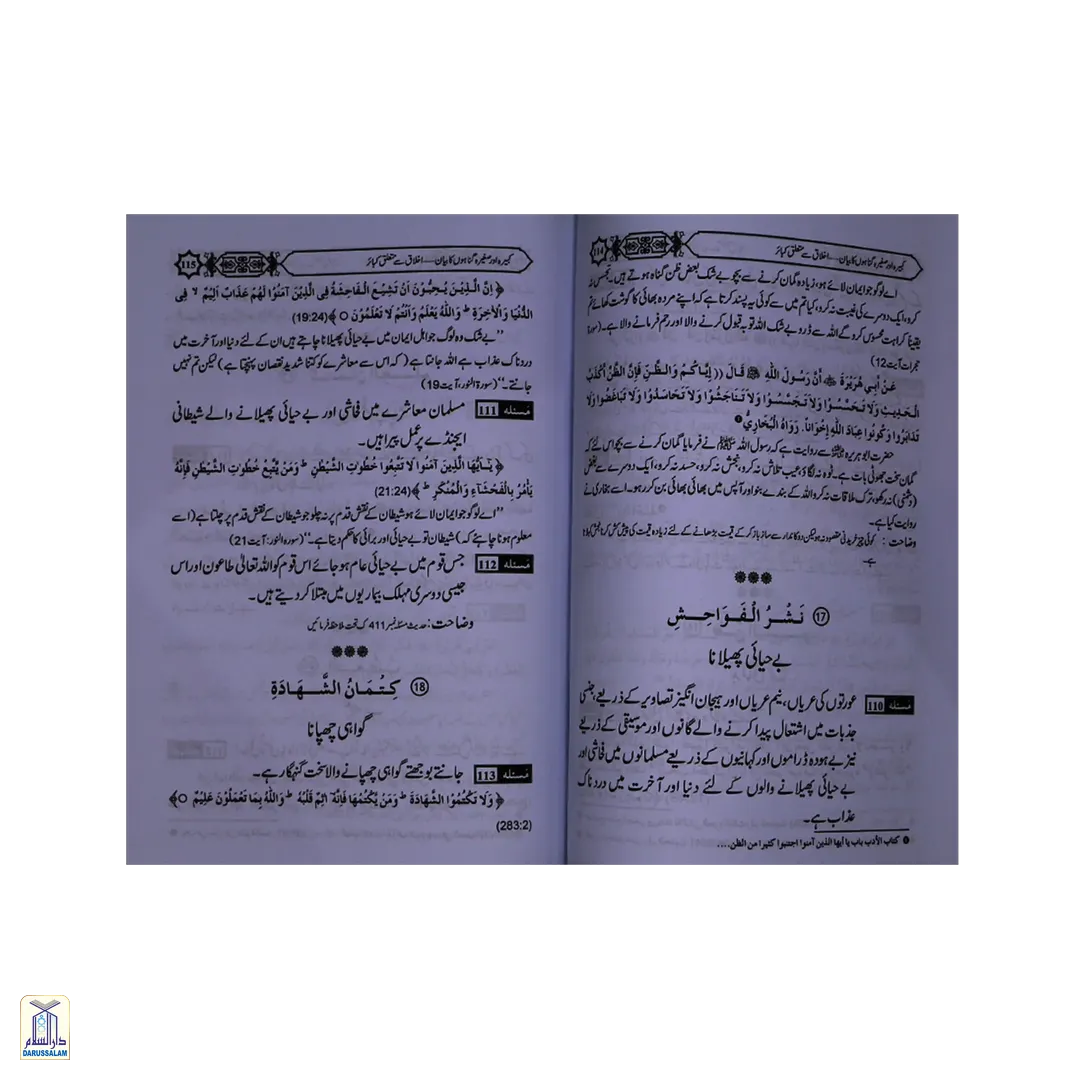 114
کبیرہ اور صغیرہ گناہوں کا بیان.....اخلاق سے متعلق کبائر
اے لوگو جو ایمان لائے ہو، زیادہ گمان کرنے سے بچو بے شک بعض ظن گناہ ہوتے ہیں۔ تجسس نہ
کرو، ایک دوسرے کی غیبت نہ کرو، کیا تم میں سے کوئی یہ پسند کرتا ہے کہ اپنے مردہ بھائی کا گوشت کھائے تم
یقیناً کراہت محسوس کرو گے اللہ سے ڈرو بے شک اللہ توبہ قبول کرنے والا اور رحم فرمانے والا ہے۔ (سورہ
حجرات آیت 12)
عَنْ أَبِي هُرَيْرَةَ ؓ أَنَّ رَسُولَ اللهِ ﷺ قَالَ (( إِيَّاكُمْ وَالظَّنَّ فَإِنَّ الظَّنَّ أَكْذَبُ
الْحَدِيثِ وَلَا تَحَسَّسُوا وَلَا تَجَسَّسُوا وَلَا تَنَاجَشُوا وَلَا تَحَاسَدُوا وَلَا تَبَاغَضُوا وَلَا
تَدَابَرُوا وَكُونُوا عِبَادَ اللهِ إِخْوَانًا. رَوَاهُ الْبُخَارِيُّ ❶
حضرت ابو ہریرہ ؓ سے روایت ہے کہ رسول اللہ ﷺ نے فرمایا گمان کرنے سے بچو اس لئے کہ
گمان سخت جھوٹی بات ہے۔ ٹوہ نہ لگاؤ، عیب تلاش نہ کرو، نجش نہ کرو، حسد نہ کرو، ایک دوسرے سے بغض
(دشمنی) نہ رکھو، ترک ملاقات نہ کرو اللہ کے بندے بنو اور آپس میں بھائی بھائی بن کر رہو۔ اسے بخاری نے
روایت کیا ہے۔
وضاحت : کوئی چیز خریدنی مقصود نہ ہو لیکن دوکاندار سے ساز باز کر کے قیمت بڑھانے کے لئے زیادہ قیمت کی پیش کش کرنا نجش کہلاتا
ہے
❋❋❋
⑰ نَشْرُ الْفَوَاحِشِ
بے حیائی پھیلانا
مسئلہ 110 عورتوں کی عریاں، نیم عریاں اور ہیجان انگیز تصاویر کے ذریعے، جنسی
جذبات میں اشتعال پیدا کرنے والے گانوں اور موسیقی کے ذریعے
نیز بے ہودہ ڈراموں اور کہانیوں کے ذریعے مسلمانوں میں فحاشی اور
بے حیائی پھیلانے والوں کے لئے دنیا اور آخرت میں دردناک
عذاب ہے۔
❶ کتاب الأدب باب یا أیها الذین آمنوا اجتنبوا کثیرا من الظن....
115
کبیرہ اور صغیرہ گناہوں کا بیان.....اخلاق سے متعلق کبائر
﴿ اِنَّ الَّذِيْنَ يُحِبُّوْنَ اَنْ تَشِيْعَ الْفَاحِشَةُ فِى الَّذِيْنَ اٰمَنُوْا لَهُمْ عَذَابٌ اَلِيْمٌ لا فِى
الدُّنْيَا وَالْاٰخِرَةِ ط وَاللّٰهُ يَعْلَمُ وَاَنْتُمْ لَا تَعْلَمُوْنَ ○ ﴾(19:24)
’’بے شک وہ لوگ جو اہل ایمان میں بے حیائی پھیلانا چاہتے ہیں ان کے لئے دنیا اور آخرت میں
دردناک عذاب ہے اللہ جانتا ہے ( کہ اس سے معاشرے کو کتنا شدید نقصان پہنچتا ہے ) لیکن تم نہیں
جانتے ۔‘‘ (سورۃ النور، آیت 19)
مسئلہ 111 مسلمان معاشرے میں فحاشی اور بے حیائی پھیلانے والے شیطانی
ایجنڈے پر عمل پیرا ہیں۔
﴿ يٰٓاَيُّهَا الَّذِيْنَ اٰمَنُوْا لَا تَتَّبِعُوْا خُطُوٰتِ الشَّيْطٰنِ ط وَمَنْ يَّتَّبِعْ خُطُوٰتِ الشَّيْطٰنِ فَاِنَّهٗ
يَاْمُرُ بِالْفَحْشَآءِ وَالْمُنْكَرِ ط ﴾(21:24)
’’اے لوگو جو ایمان لائے ہو شیطان کے نقش قدم پر نہ چلو جو شیطان کے نقش قدم پر چلتا ہے (اسے
معلوم ہونا چاہئے کہ ) شیطان تو بے حیائی اور برائی کا حکم دیتا ہے۔‘‘ (سورہ النور: آیت 21)
مسئلہ 112 جس قوم میں بے حیائی عام ہو جائے اس قوم کو اللہ تعالیٰ طاعون اور اس
جیسی دوسری مہلک بیماریوں میں مبتلا کر دیتے ہیں۔
وضاحت : حدیث مسئلہ نمبر 411 کے تحت ملاحظہ فرمائیں
❋❋❋
⑱ كِتْمَانُ الشَّهَادَةِ
گواہی چھپانا
مسئلہ 113 جانتے بوجھتے گواہی چھپانے والا سخت گنہگار ہے۔
﴿ وَلَا تَكْتُمُوا الشَّهَادَةَ ط وَمَنْ يَّكْتُمْهَا فَاِنَّهٗ اٰثِمٌ قَلْبُهٗ ط وَاللّٰهُ بِمَا تَعْمَلُوْنَ عَلِيْمٌ ○ ﴾
(283:2)
دارالسلام
DARUSSALAM